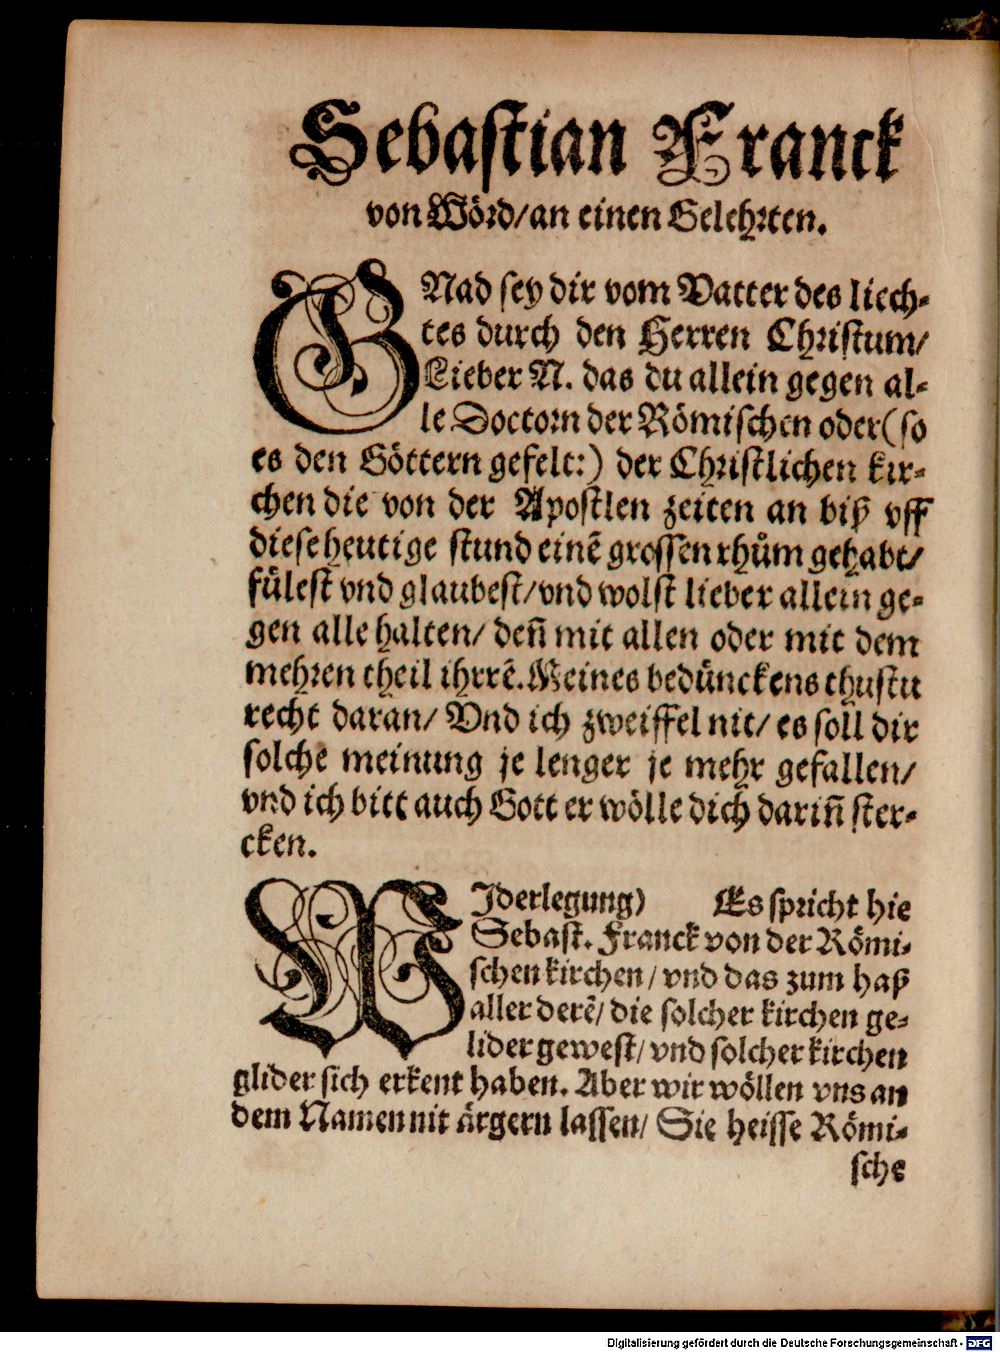 Sebastian Franck
von Wörd/an einen Gelehrten.
GNad sey dir vom Vatter des liech-
tes durch den Herren Christum/
Lieber N. das du allein gegen al-
le Doctorn der Römischen oder(so
es den Göttern gefelt:) der Christlichen kir-
chen die von der Apostlen zeiten an biß vff
diese heutige stund einē grossen rhům gehabt/
fülest vnd glaubest/vnd wolst lieber allein ge-
gen alle halten/ deñ mit allen oder mit dem
mehren theil ihrrē. Meines bedünckens thustu
recht daran/ Vnd ich zweiffel nit/ es soll dir
solche meinung je lenger je mehr gefallen/
vnd ich bitt auch Gott er wölle dich dariñ ster-
cken.
WIderlegung) Es spricht hie
Sebast. Franck von der Römi-
schen kirchen/ vnd das zum haß
aller derē/ die solcher kirchen ge-
lider gewest/ vnd solcher kirchen
glider sich erkent haben. Aber wir wöllen vns an
dem Namen nit ärgern lassen/ Sie heisse Römi-
sche
Digitalisierung gefördert durch die Deutsche Forschungsgemeinschaft - DFG